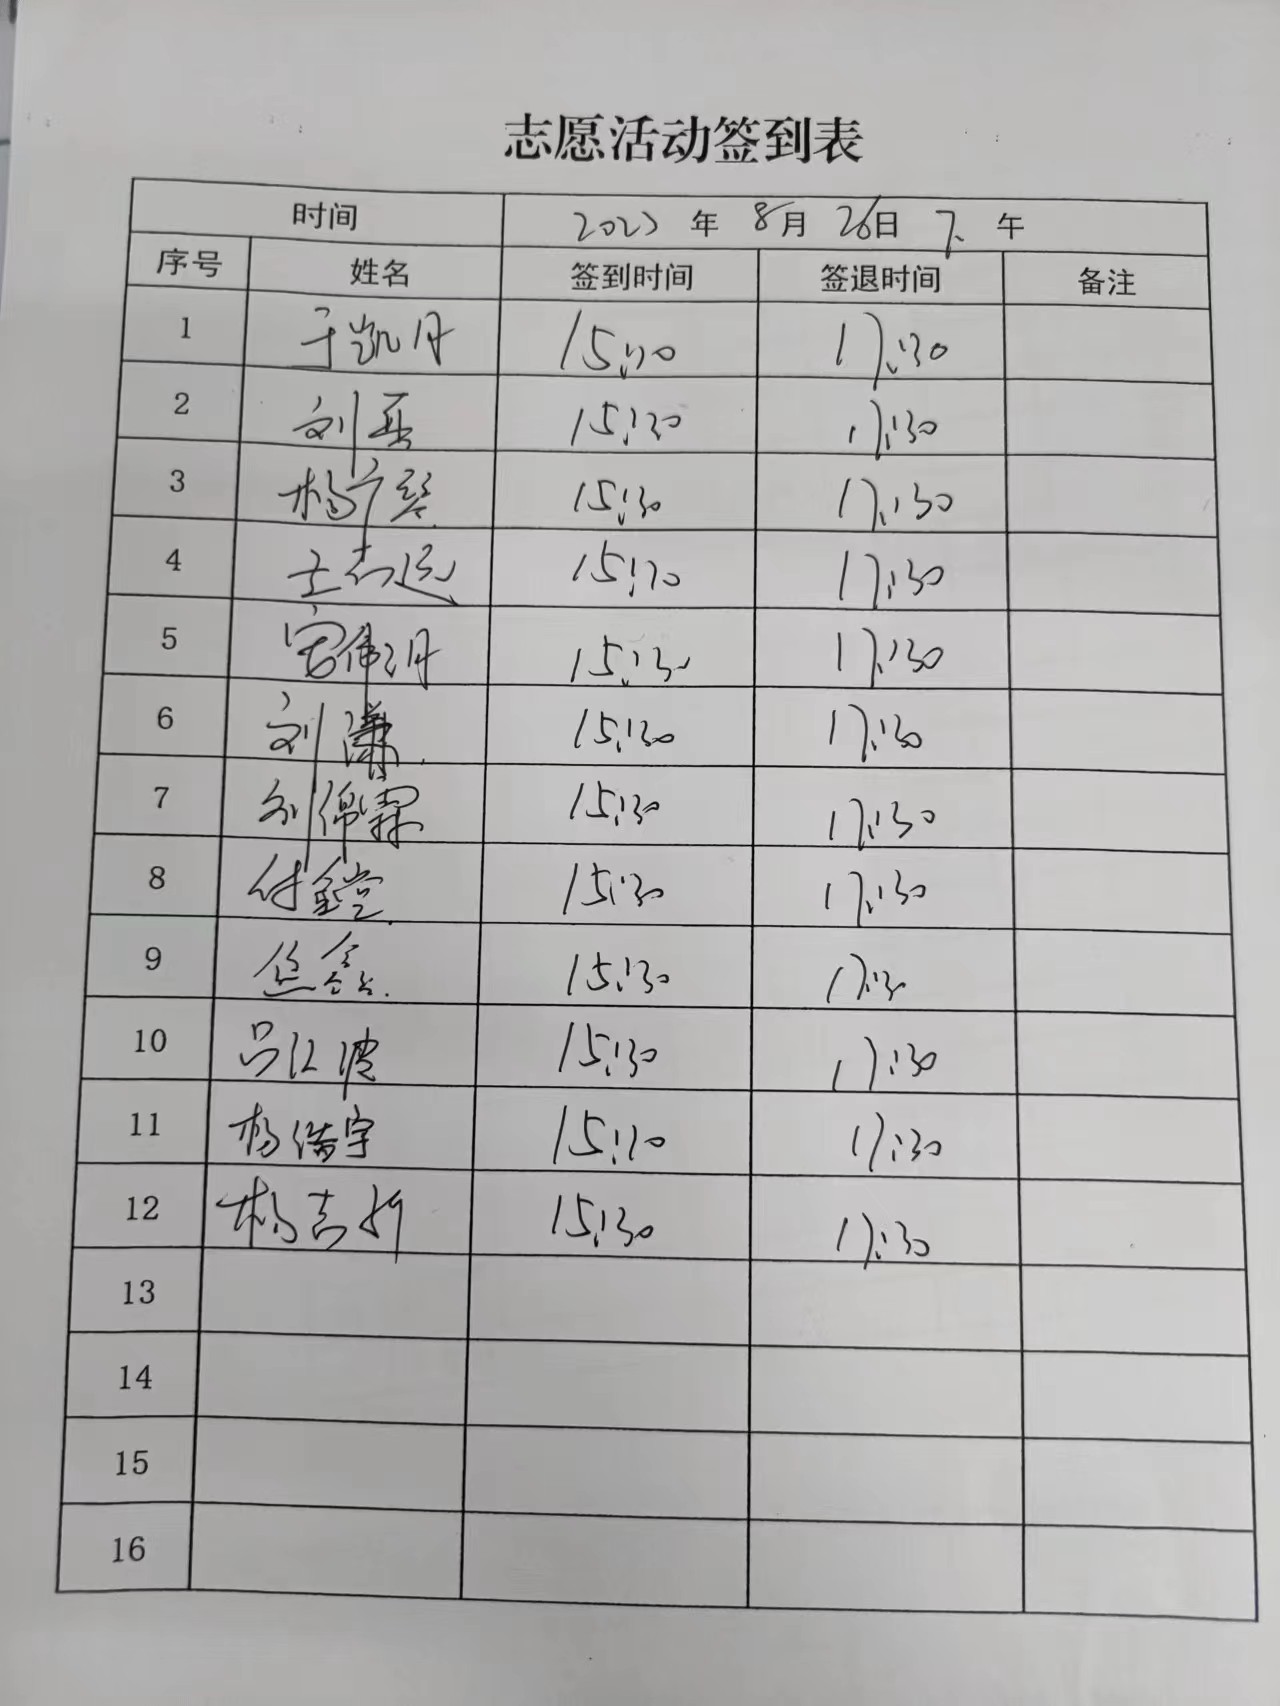 志愿活动签到表
时间 年 8月 26日 下 午
序号 姓名 签到时间 签退时间 备注
1 于凯丹 15:30 17:30
2 刘 15:30 17:30
3 杨广 15:30 17:30
4 王志远 15:30 17:30
5 15:30 17:30
6 刘潇 15:30 17:30
7 刘锦霖 15:30 17:30
8 付 15:30 17:30
9 15:30 17:30
10 吕江波 15:30 17:30
11 杨浩宇 15:30 17:30
12 杨吉 15:30 17:30
13
14
15
16